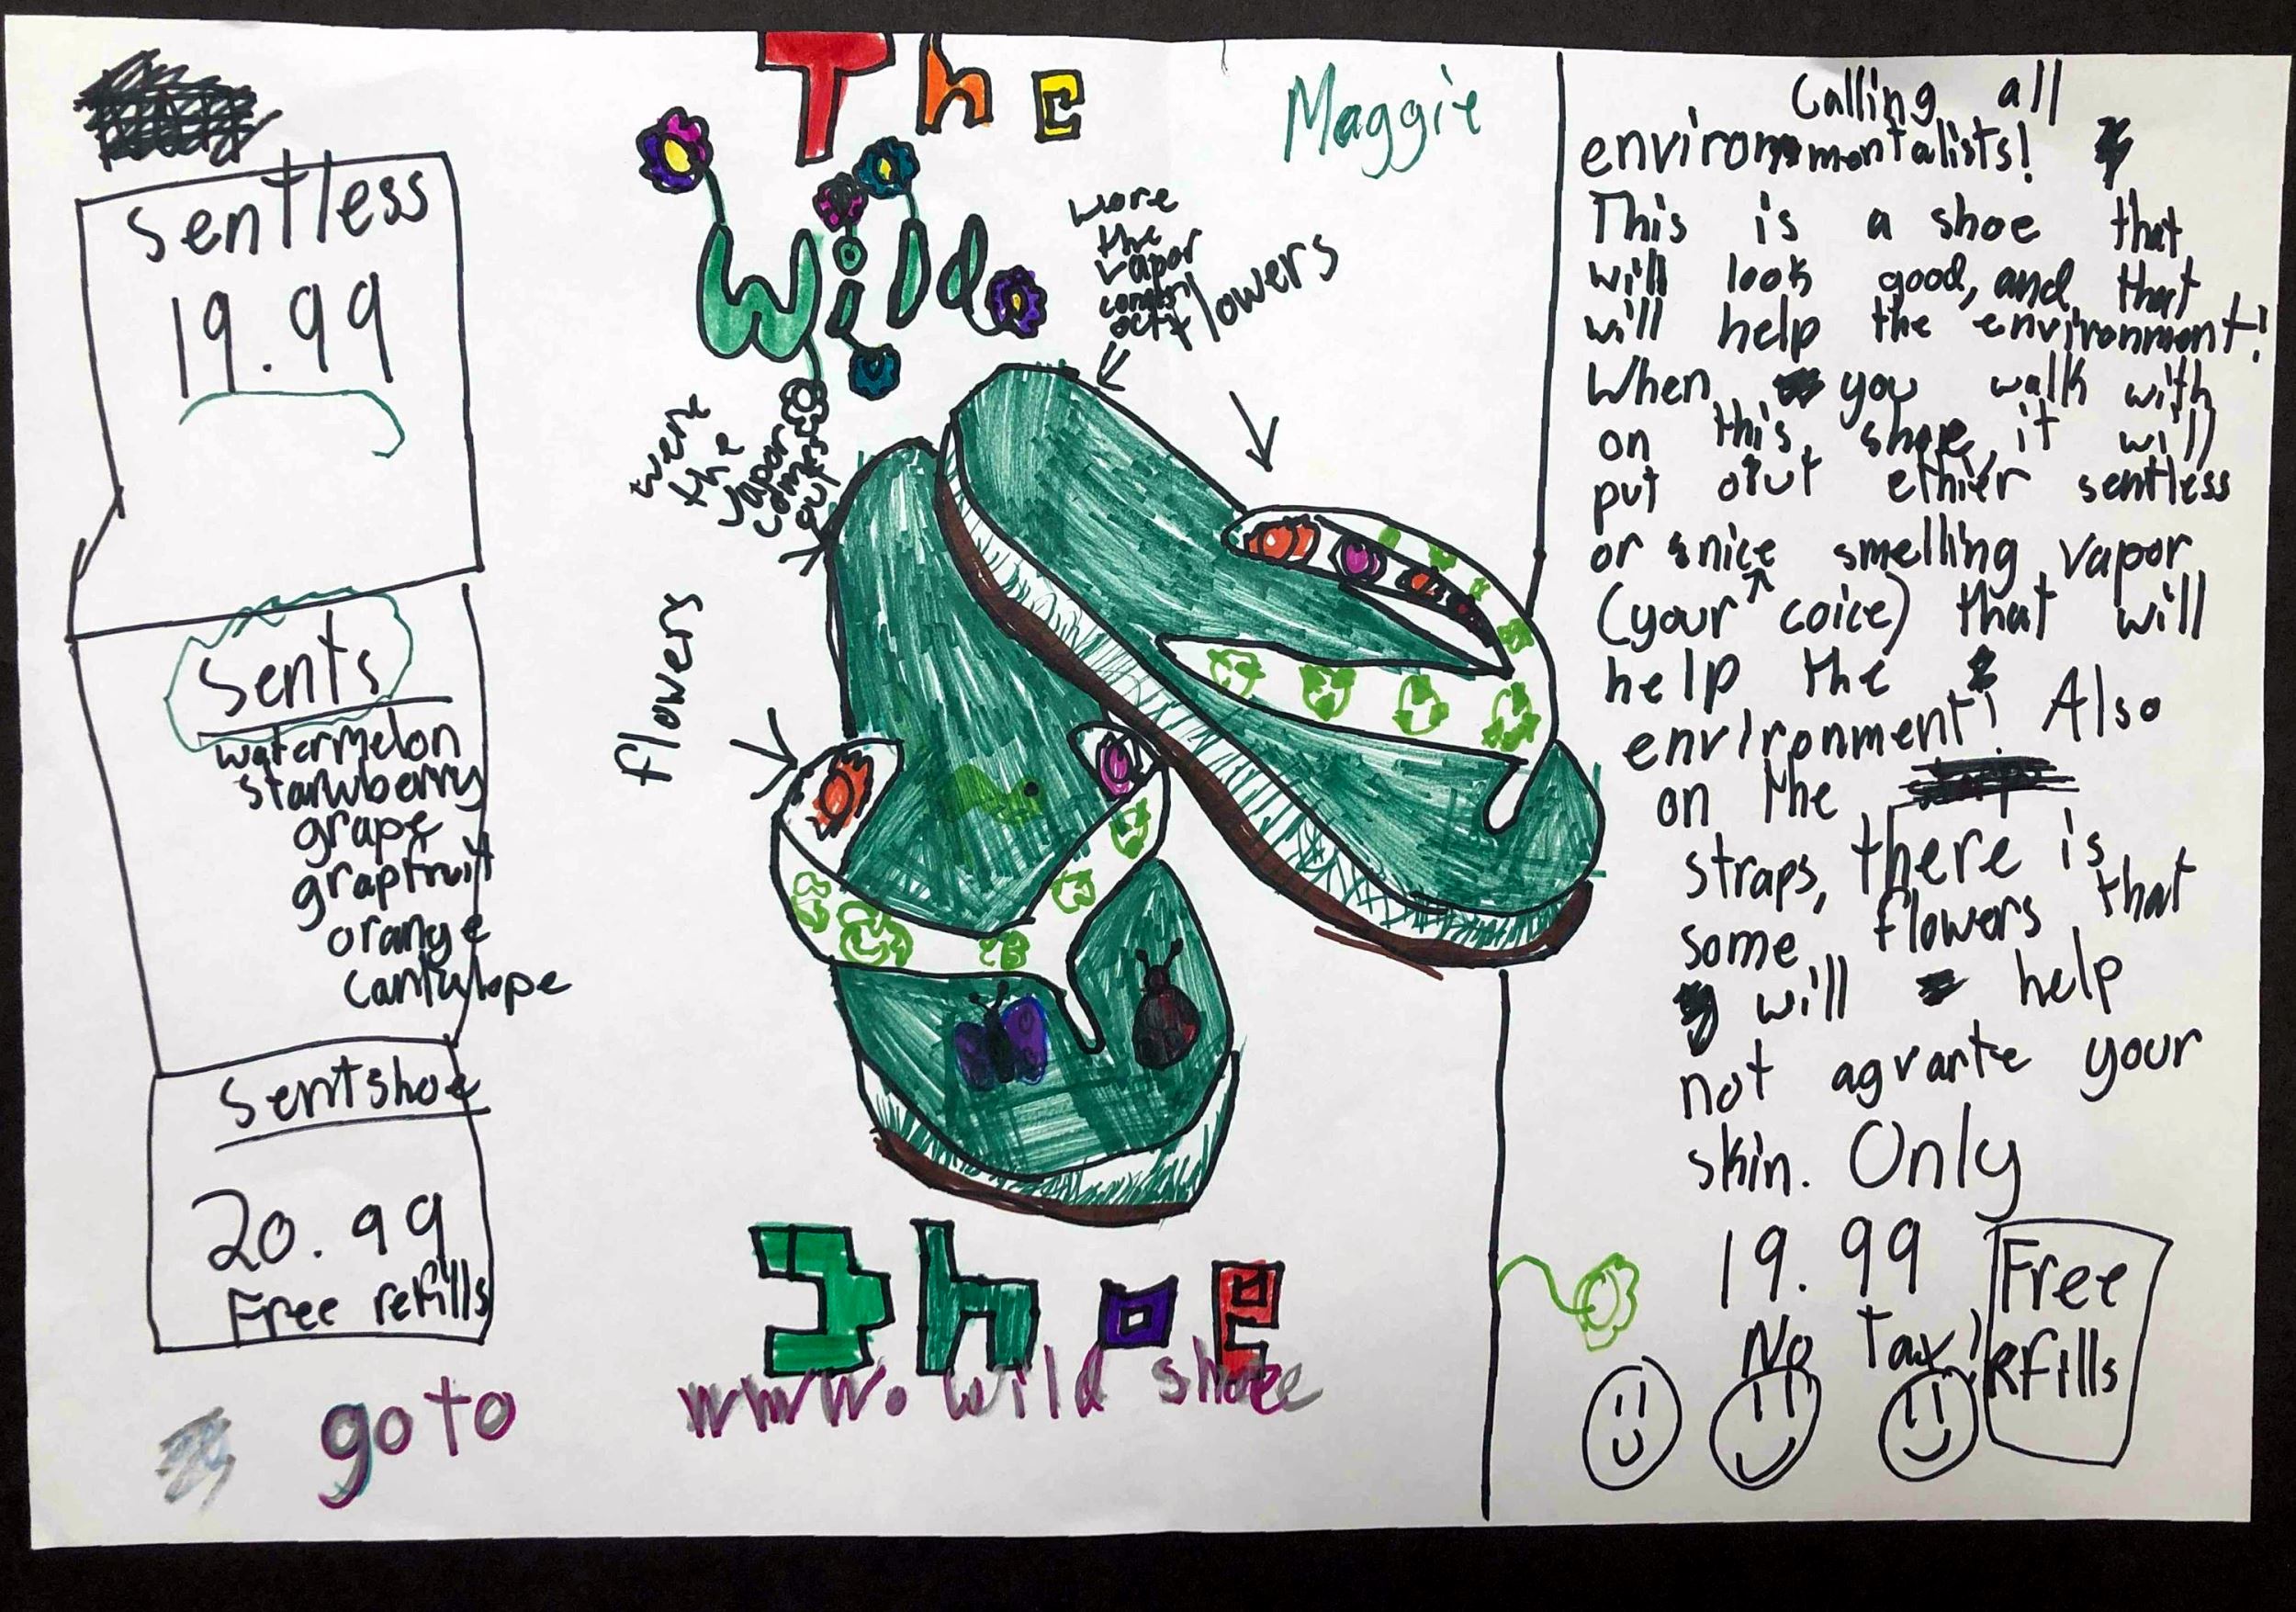 The
Wild
Maggie
Sentless
19.99
Sents
watermelon
starwberry
grape
grapfruit
orange
cantulope
Sentshoe
20.99
Free refills
wore
the
vapor
flowers
were
the
vapor
comes
out
flowers
Shoe
go to www.wild shoe
Calling all
environmontalists!
This is a shoe that
will look good, and that
will help the environment!
When you walk with
on this shoe, it will
put out ethier sentless
or nice smelling vapor
(your coice) that will
help the
environment! Also
on the
straps, there is
some flowers that
will help
not agrvante your
skin. Only
19.99
No Tax!
Free
Refills